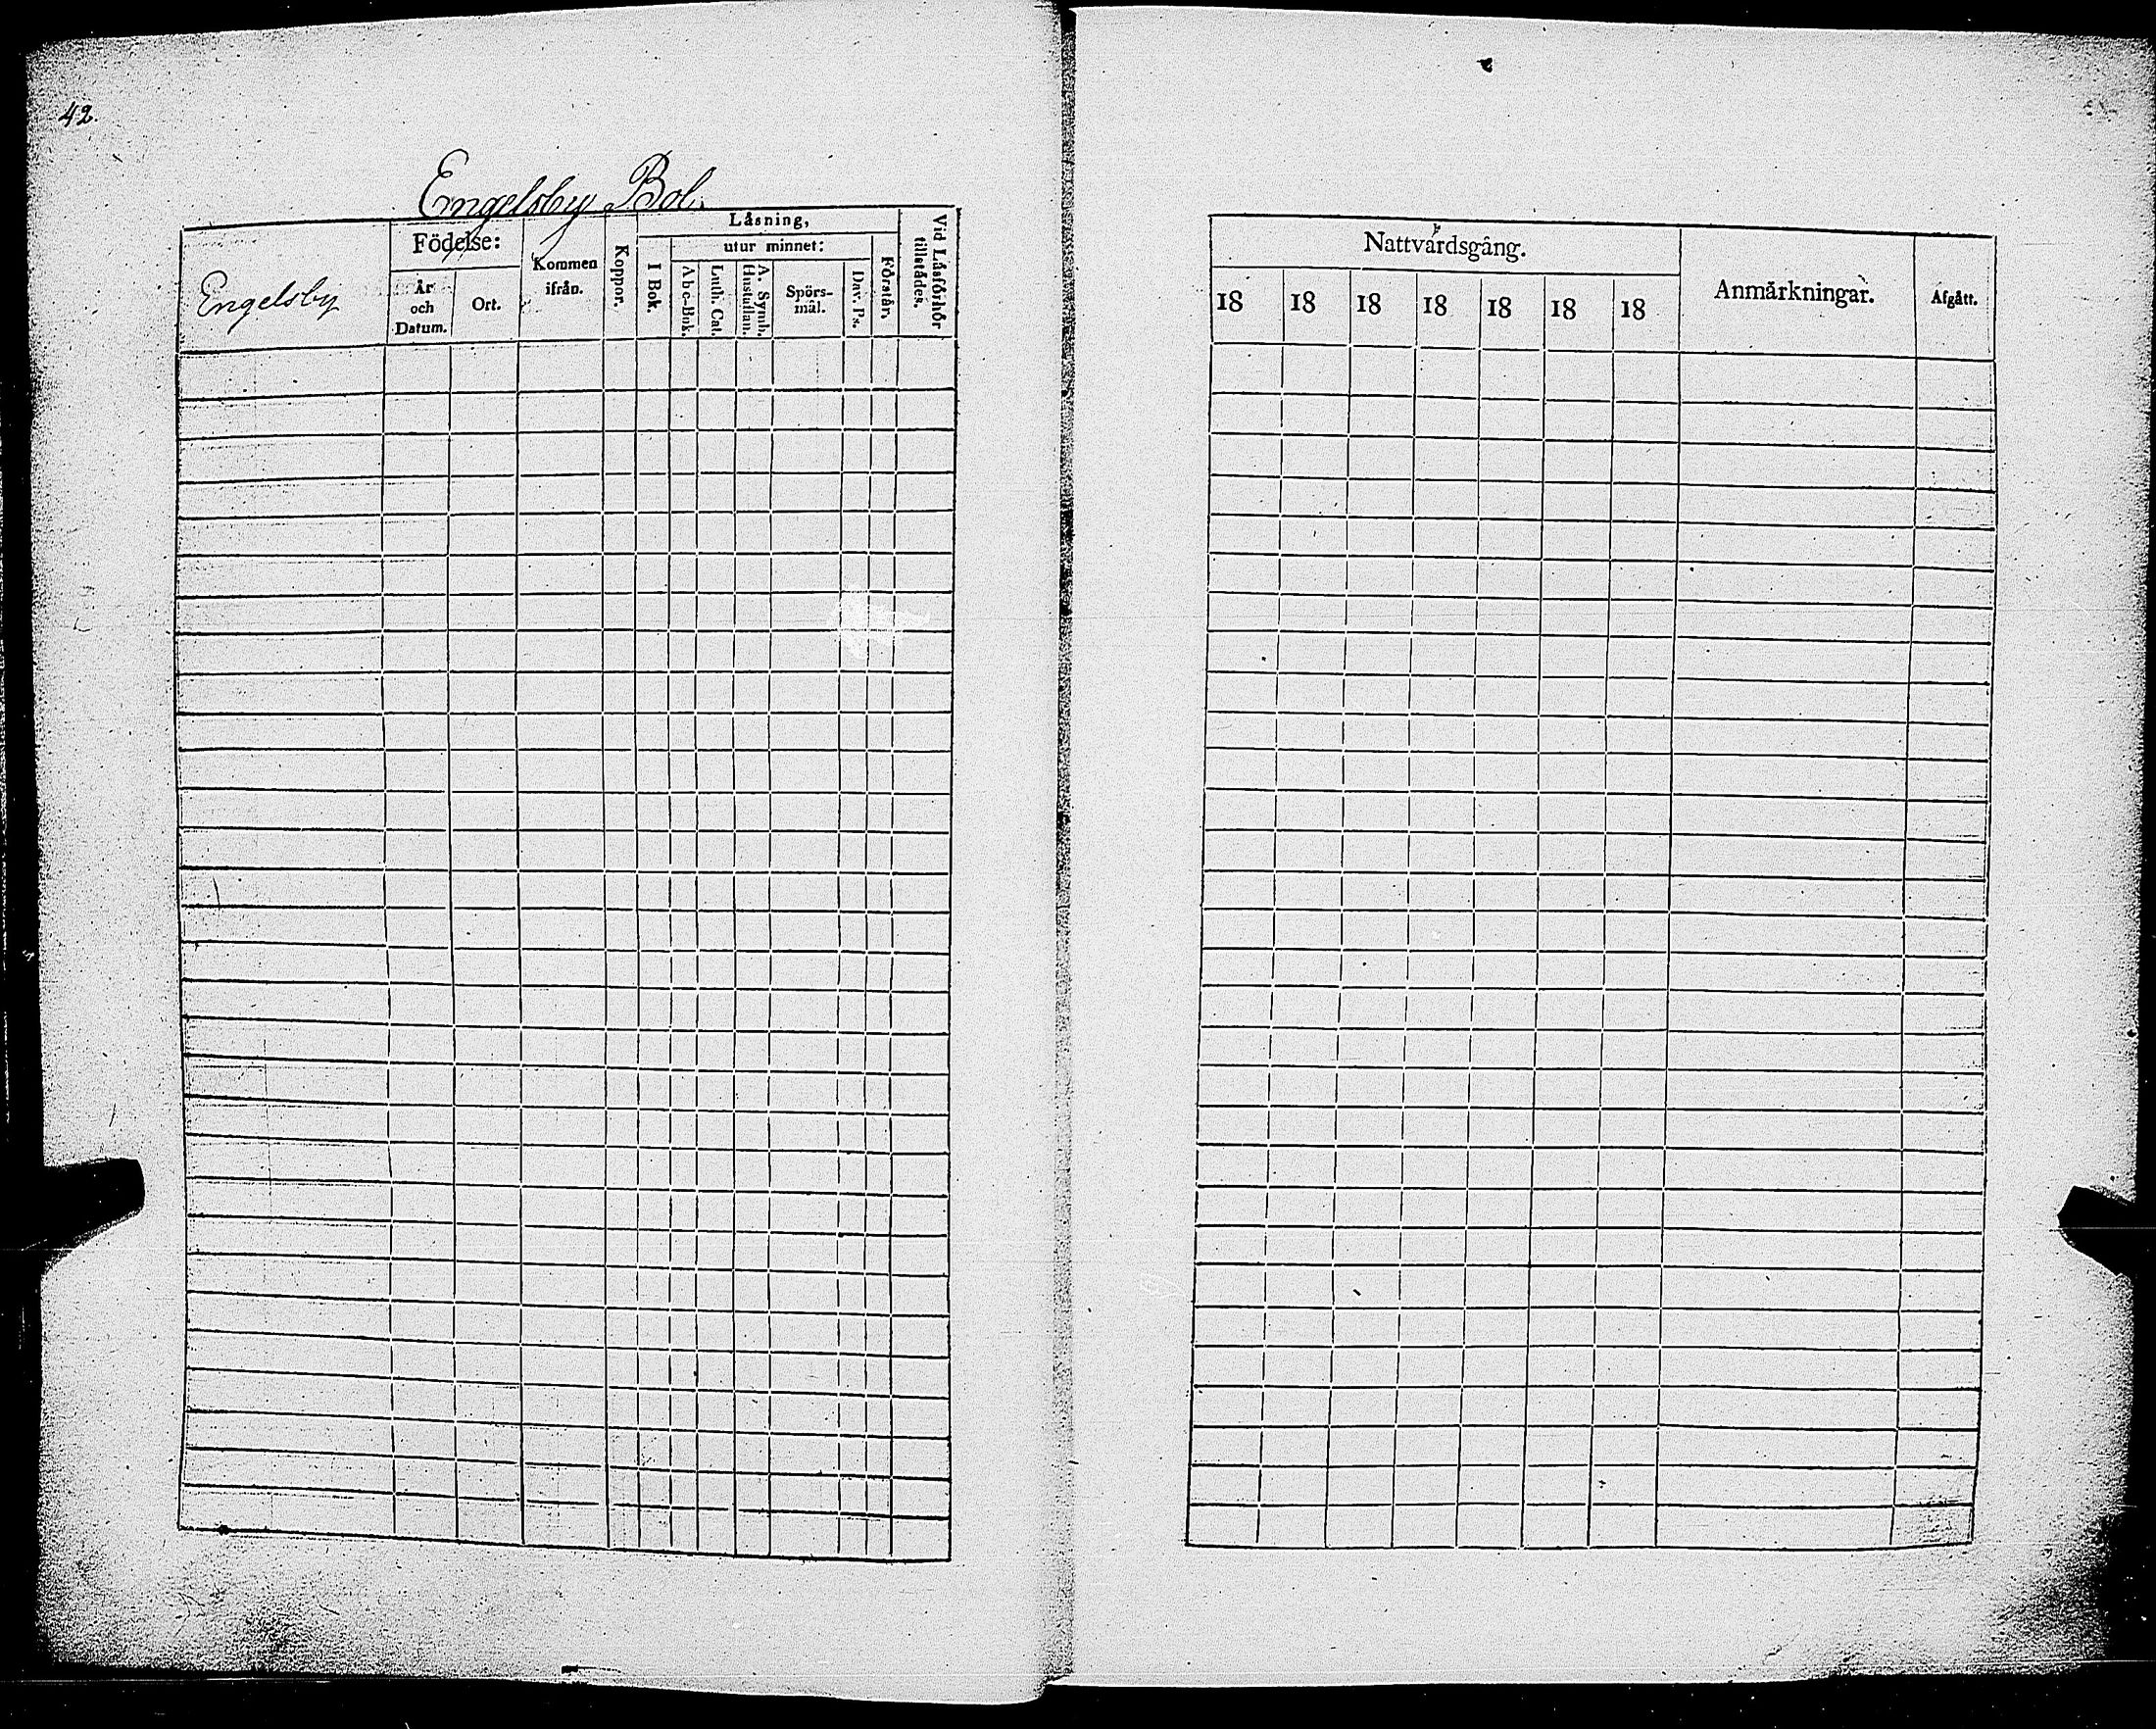 42.
Engelsby Bol.
Engelsby
Födelse:
År
och
Datum.
Ort.
Kommen
ifrån.
Koppor.
Läsning,
I Bok.
utur minnet:
Abc-Bok.
Luth. Cat.
A. Symb.
Hustaflan.
Spörs-
mål.
Dav. Ps.
Förstår.
Vid Läsförhör
tillstädes.
Nattvårdsgång.
18 18 18 18 18 18 18
Anmärkningar.
Afgått.